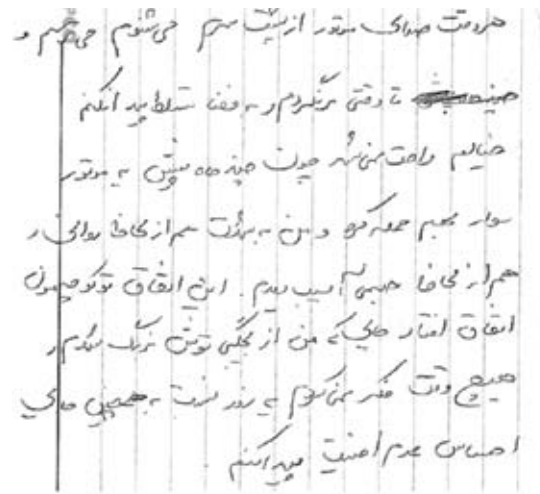 هروقت صدای موتور از پشت سرم می‌شنوم می‌ترسم و
تا وقتی برنگردم و به فضا تسلط پیدا نکنم
خیالم راحت نمی‌شه چون چند ماه پیش یه موتور
سوار بهم حمله کرد و من به شدت هم از لحاظ روانی و
هم از لحاظ جسمی آسیب دیدم. این اتفاق تو کوچمون
اتفاق افتاد جایی که من از بچگی توش بزرگ شدم و
هیچ وقت فکر نمی‌کردم یه روز نسبت به همچین جایی
احساس عدم امنیت پیدا کنم